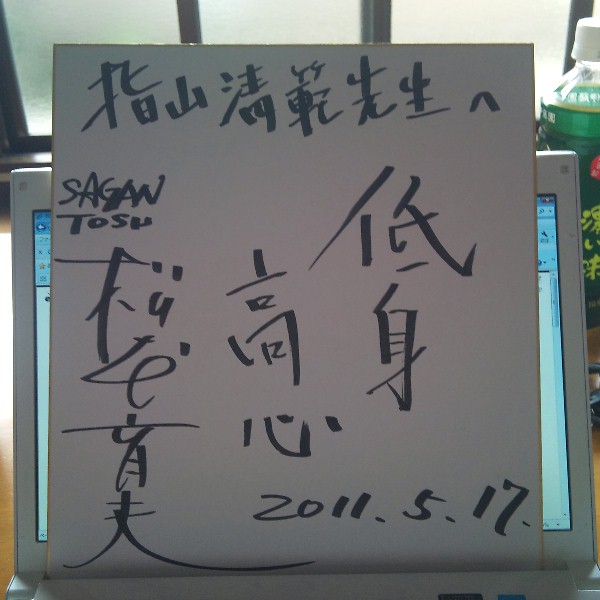 指山清範先生へ
低身
高心
SAGAN
TOSU
育夫
2011.5.17.
濃い味